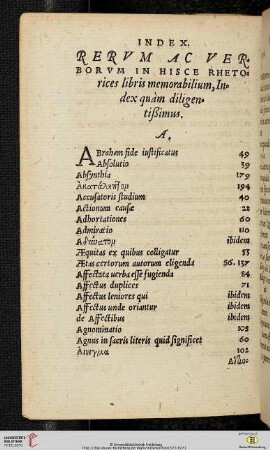 INDEX.
RERVM AC VER-
BORVM IN HISCE RHETO-
rices libris memorabilium, In-
dex quàm diligen-
tißimus.
A.
ABraham fide iustificatus 49
Absolutio 39
Absynthia 179
194
Accusatoris studium 40
Actionum causæ 22
Adhortationes 60
Admiratio 110
ibidem
Æquitas ex quibus colligatur 53
Ætas certorum autorum eligenda 96. 137
Affectata uerba esse fugienda 84
Affectus duplices 71
Affectus leniores qui ibidem
Affectus unde oriantur ibidem
de Affectibus ibidem
Agnominatio 105
Agnus in sacris literis quid significet 60
Αἴνιγμα 102